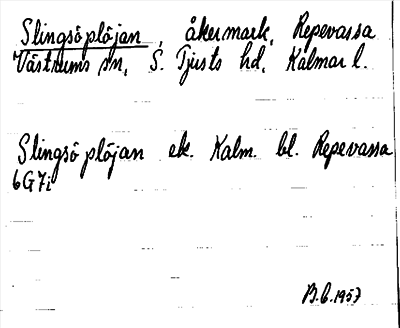 Slingsöplöjan, åkermark, Repevassa
Västrums sn, S. Tjusts hd, Kalmar l.
Slingsöplöjan ek. Kalm. bl. Repevassa
6G7i
B.b. 1957